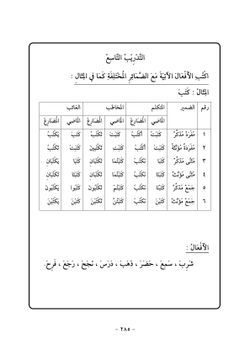 التَّدْرِيْبُ التَّاسِعُ
اكْتُبِ الْأَفْعَالَ الآتِيَةَ مَعَ الضَّمَائِرِ الْمُخْتَلِفَةِ كَمَا فِي الْمِثَالِ :
الْمِثَالُ : كَتَبَ
رقم الضمير المتكلم المخاطب الغائب
الماضي المُضَارِعُ الماضي المُضَارِعُ الماضي المُضَارِعُ
١ مُفْرَدٌ مُذَكَّرٌ كَتَبْتُ أَكْتُبُ كَتَبْتَ تَكْتُبُ كَتَبَ يَكْتُبُ
٢ مُفْرَدَةٌ مُؤَنَّثَةٌ كَتَبْتُ أَكْتُبُ كَتَبْتِ تَكْتُبِيْنَ كَتَبَتْ تَكْتُبُ
٣ مُثَنَّى مُذَكَّرٌ كَتَبْنَا نَكْتُبُ كَتَبْتُمَا تَكْتُبَانِ كَتَبَا يَكْتُبَانِ
٤ مُثَنَّى مُؤَنَّثٌ كَتَبْنَا نَكْتُبُ كَتَبْتُمَا تَكْتُبَانِ كَتَبَتَا تَكْتُبَانِ
٥ جَمْعٌ مُذَكَّرٌ كَتَبْنَا نَكْتُبُ كَتَبْتُمْ تَكْتُبُونَ كَتَبُوا يَكْتُبُونَ
٦ جَمْعٌ مُؤَنَّثٌ كَتَبْنَا نَكْتُبُ كَتَبْتُنَّ تَكْتُبْنَ كَتَبْنَ يَكْتُبْنَ
الأَفْعَالُ :
شَرِبَ ، سَمِعَ ، حَضَرَ ، ذَهَبَ ، دَرَسَ ، نَجَحَ ، رَجَعَ ، فَرِحَ
- ٢٨٥ -